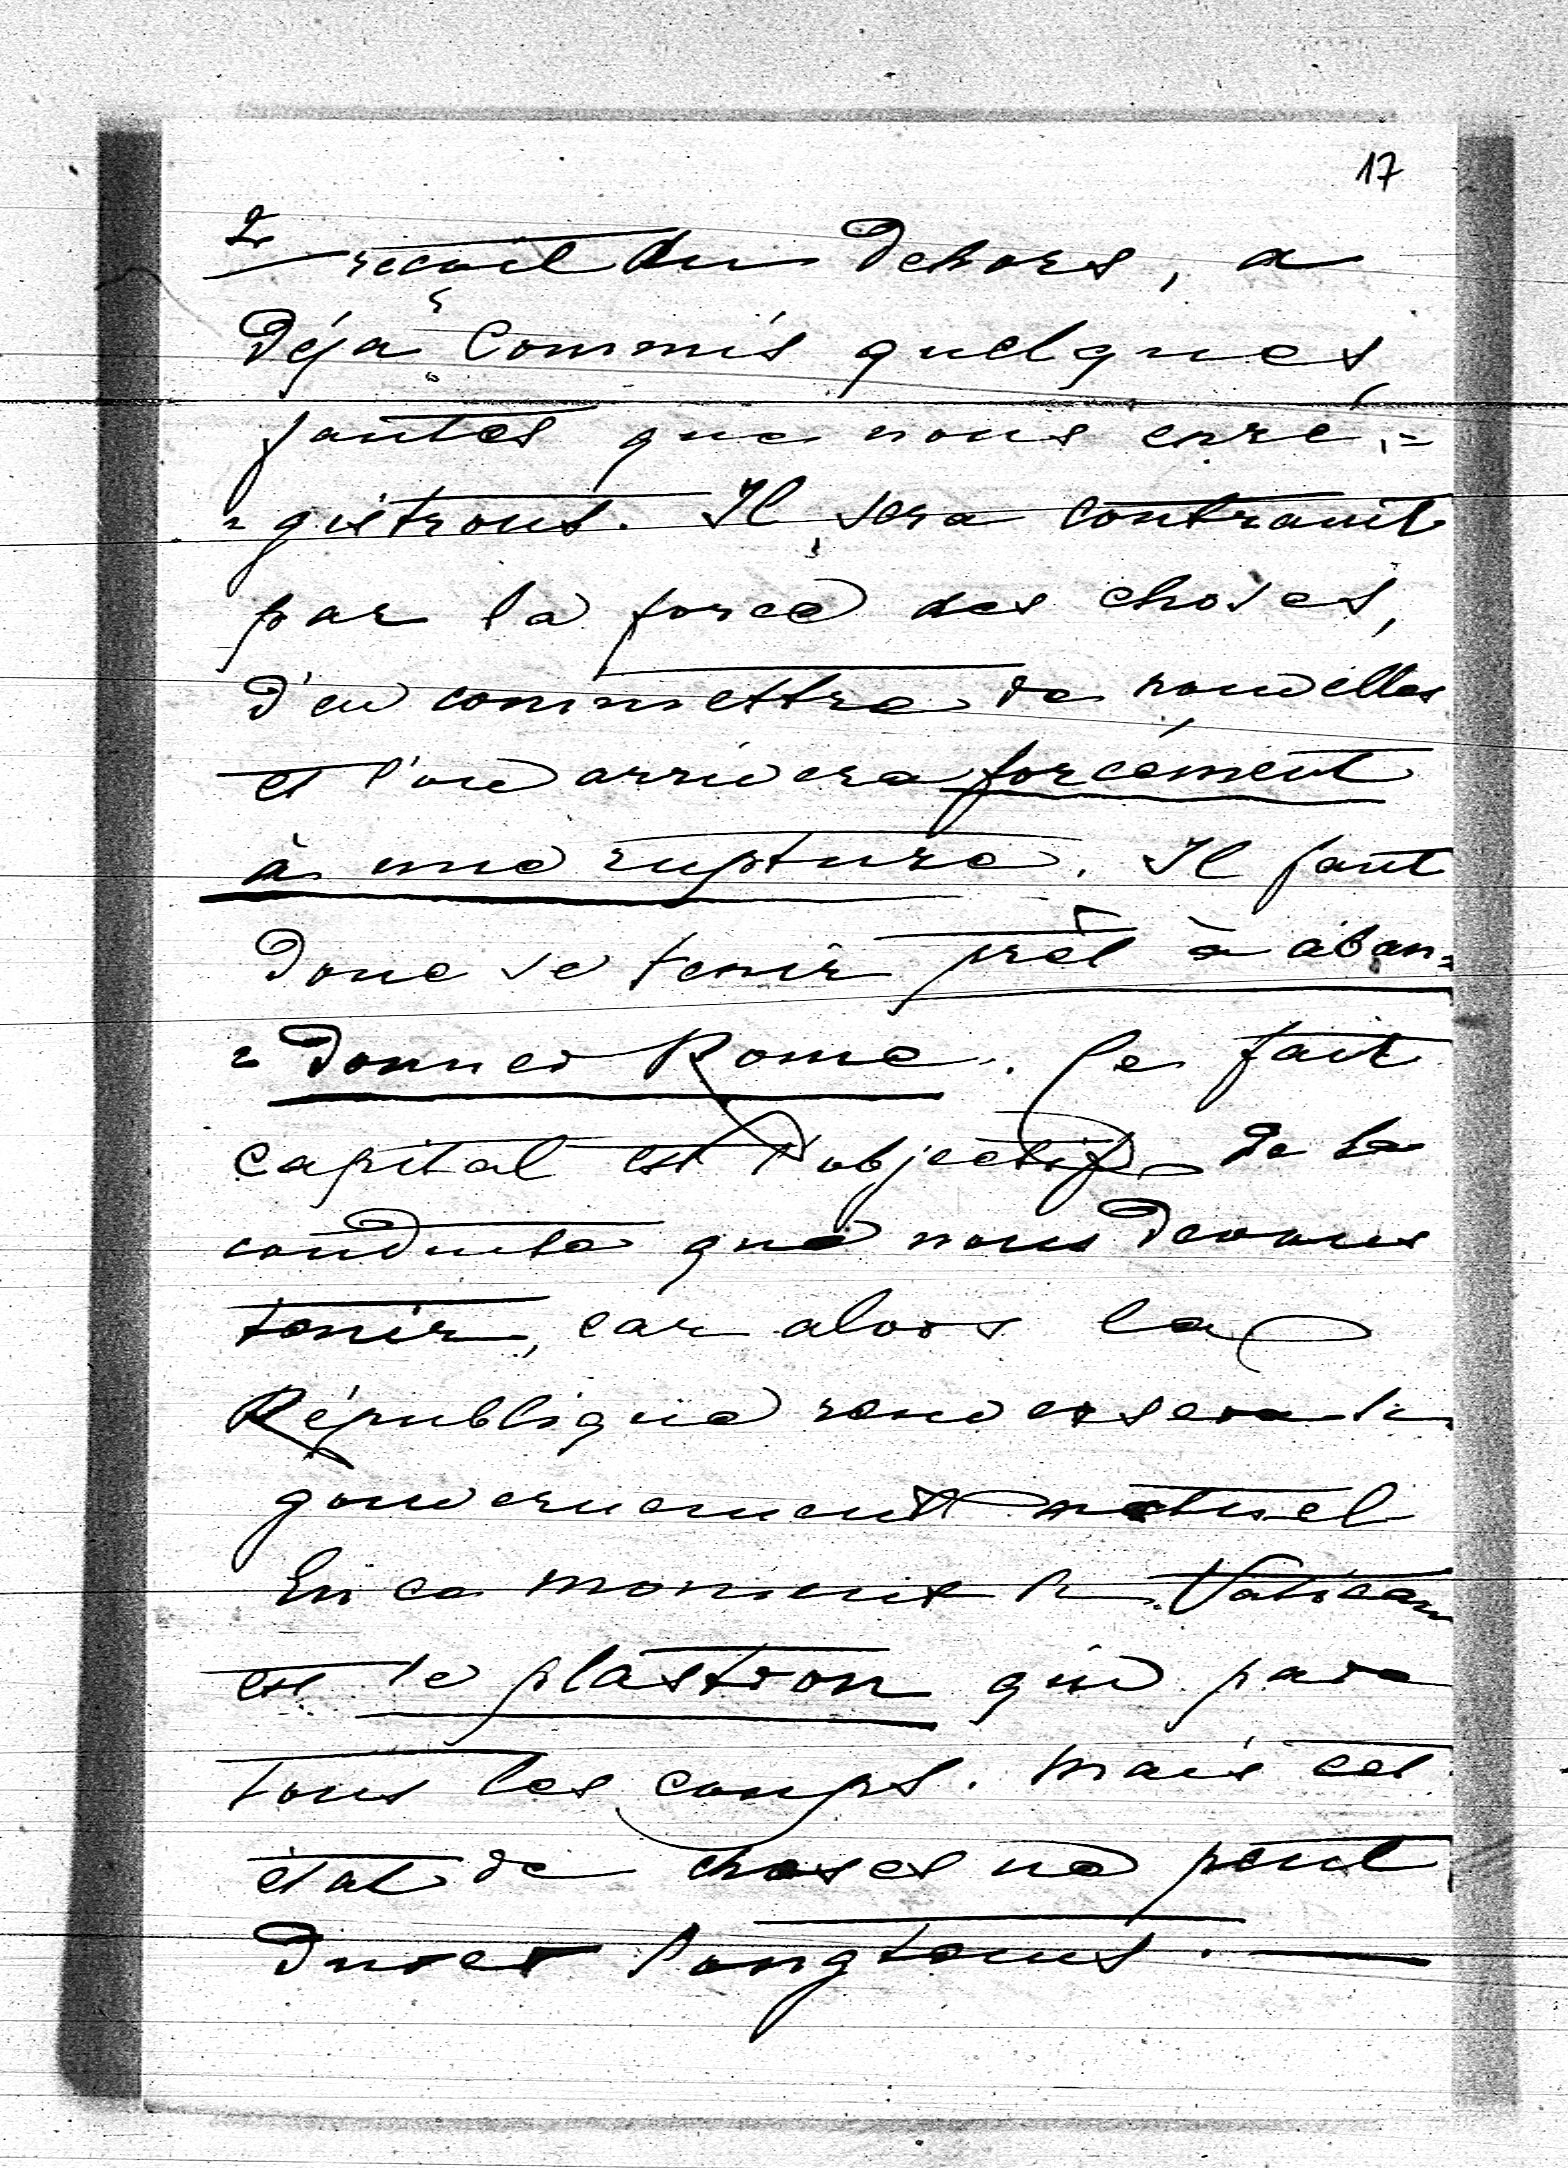 17
2
reçoit du dehors, a
déja commis quelques
fautes que nous enré=
=gistrons. Il sera contraint
par la force des choses,
d'en commettre de nouvelles
et l'on arrivera forcément
à une rupture. Il faut
donc se tenir prêt à aban=
=donner Rome. Ce fait
capital est l'objectif de la
conduite que nous devons
tenir, car alors la
République renversera le
gouvernement actuel
En ce moment le Vatican
est le plastron qui pare
tous les coups. Mais cet
état de choses ne peut
durer longtems. —